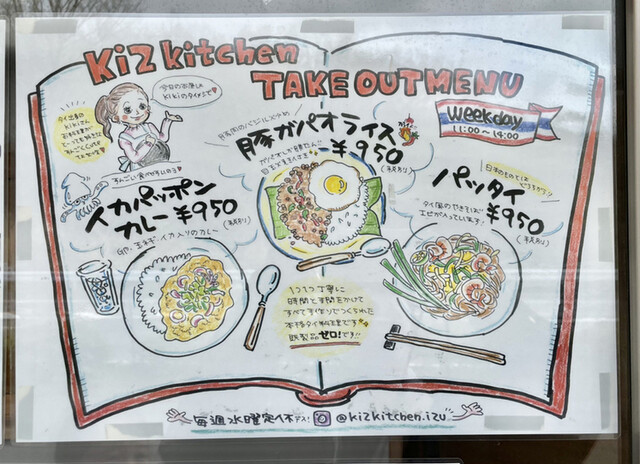 KiZ kitchen
TAKE OUT MENU
weekday
11:00～14:00
今日のお昼は
kikiのタイメシで
タイ出身の
kikiさん
豚ガパオライス
¥950
(税別)
イカパッポン
カレー ¥950
(税別)
卵、玉ネギ、イカ入りのカレー
パッタイ
¥950
(税別)
タイ風のやきそば
エビが入ってます!
1つ1つ丁寧に
時間と手間をかけて
すべて手作りでつくられた
本格タイ料理です
既製品ゼロ!です!!
毎週水曜定休デス!
@kizkitchen.izu